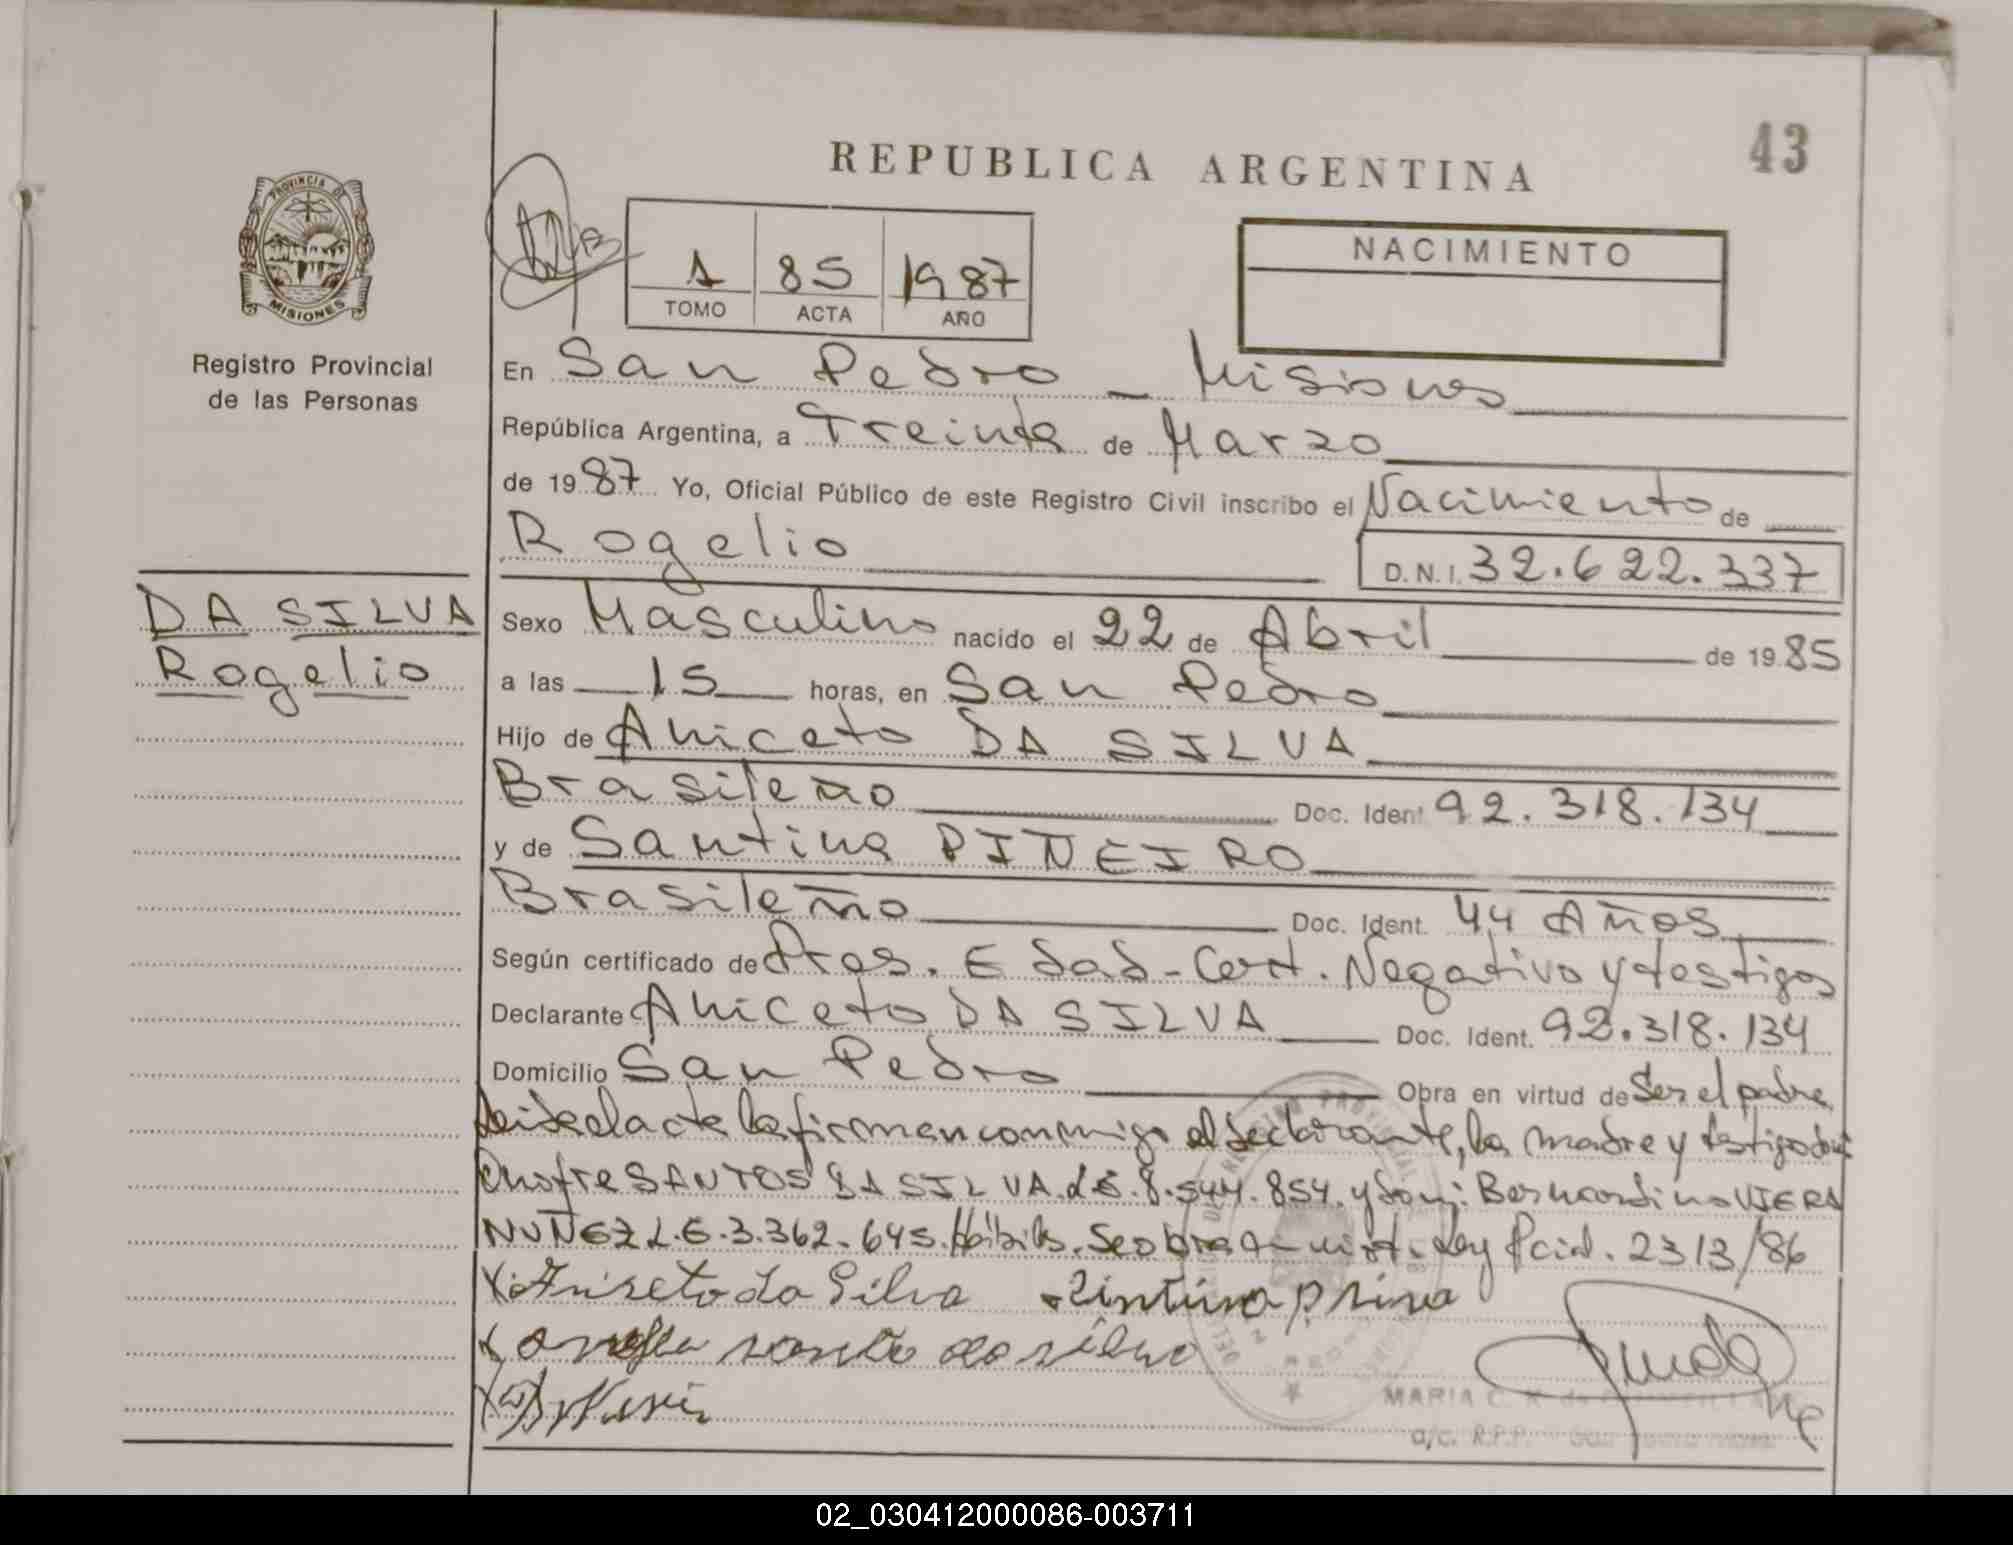 43
REPUBLICA ARGENTINA
PROVINCIA DE
MISIONES
Registro Provincial
de las Personas
1 85 1987
TOMO ACTA AÑO
NACIMIENTO
En San Pedro - Misiones
República Argentina, a Treinta de Marzo
de 1987 Yo, Oficial Público de este Registro Civil inscribo el Nacimiento de
Rogelio
D.N.I. 32.622.337
DA SILVA
Rogelio
Sexo Masculino nacido el 22 de Abril de 1985
a las 15 horas, en San Pedro
Hijo de Aniceto DA SILVA
Brasileño Doc. Ident 92.318.134
y de Santina PIÑEIRO
Brasileño Doc. Ident. 44 Años
Según certificado de Pres. Edad - Cert. Negativo y testigos
Declarante Aniceto DA SILVA Doc. Ident. 92.318.134
Domicilio San Pedro Obra en virtud de Ser el padre
Leida el acta la firman conmigo el declarante, la madre y testigos
Onofre SANTOS DA SILVA L.E. 8.544.854 y Bernardino VIERA
NUÑEZ L.E. 3.362.645 Hábiles. Se obra Ley Pcial. 2313/86
Aniseto da Silva
MARIA C.
a/c. R.P.P.
02_030412000086-003711